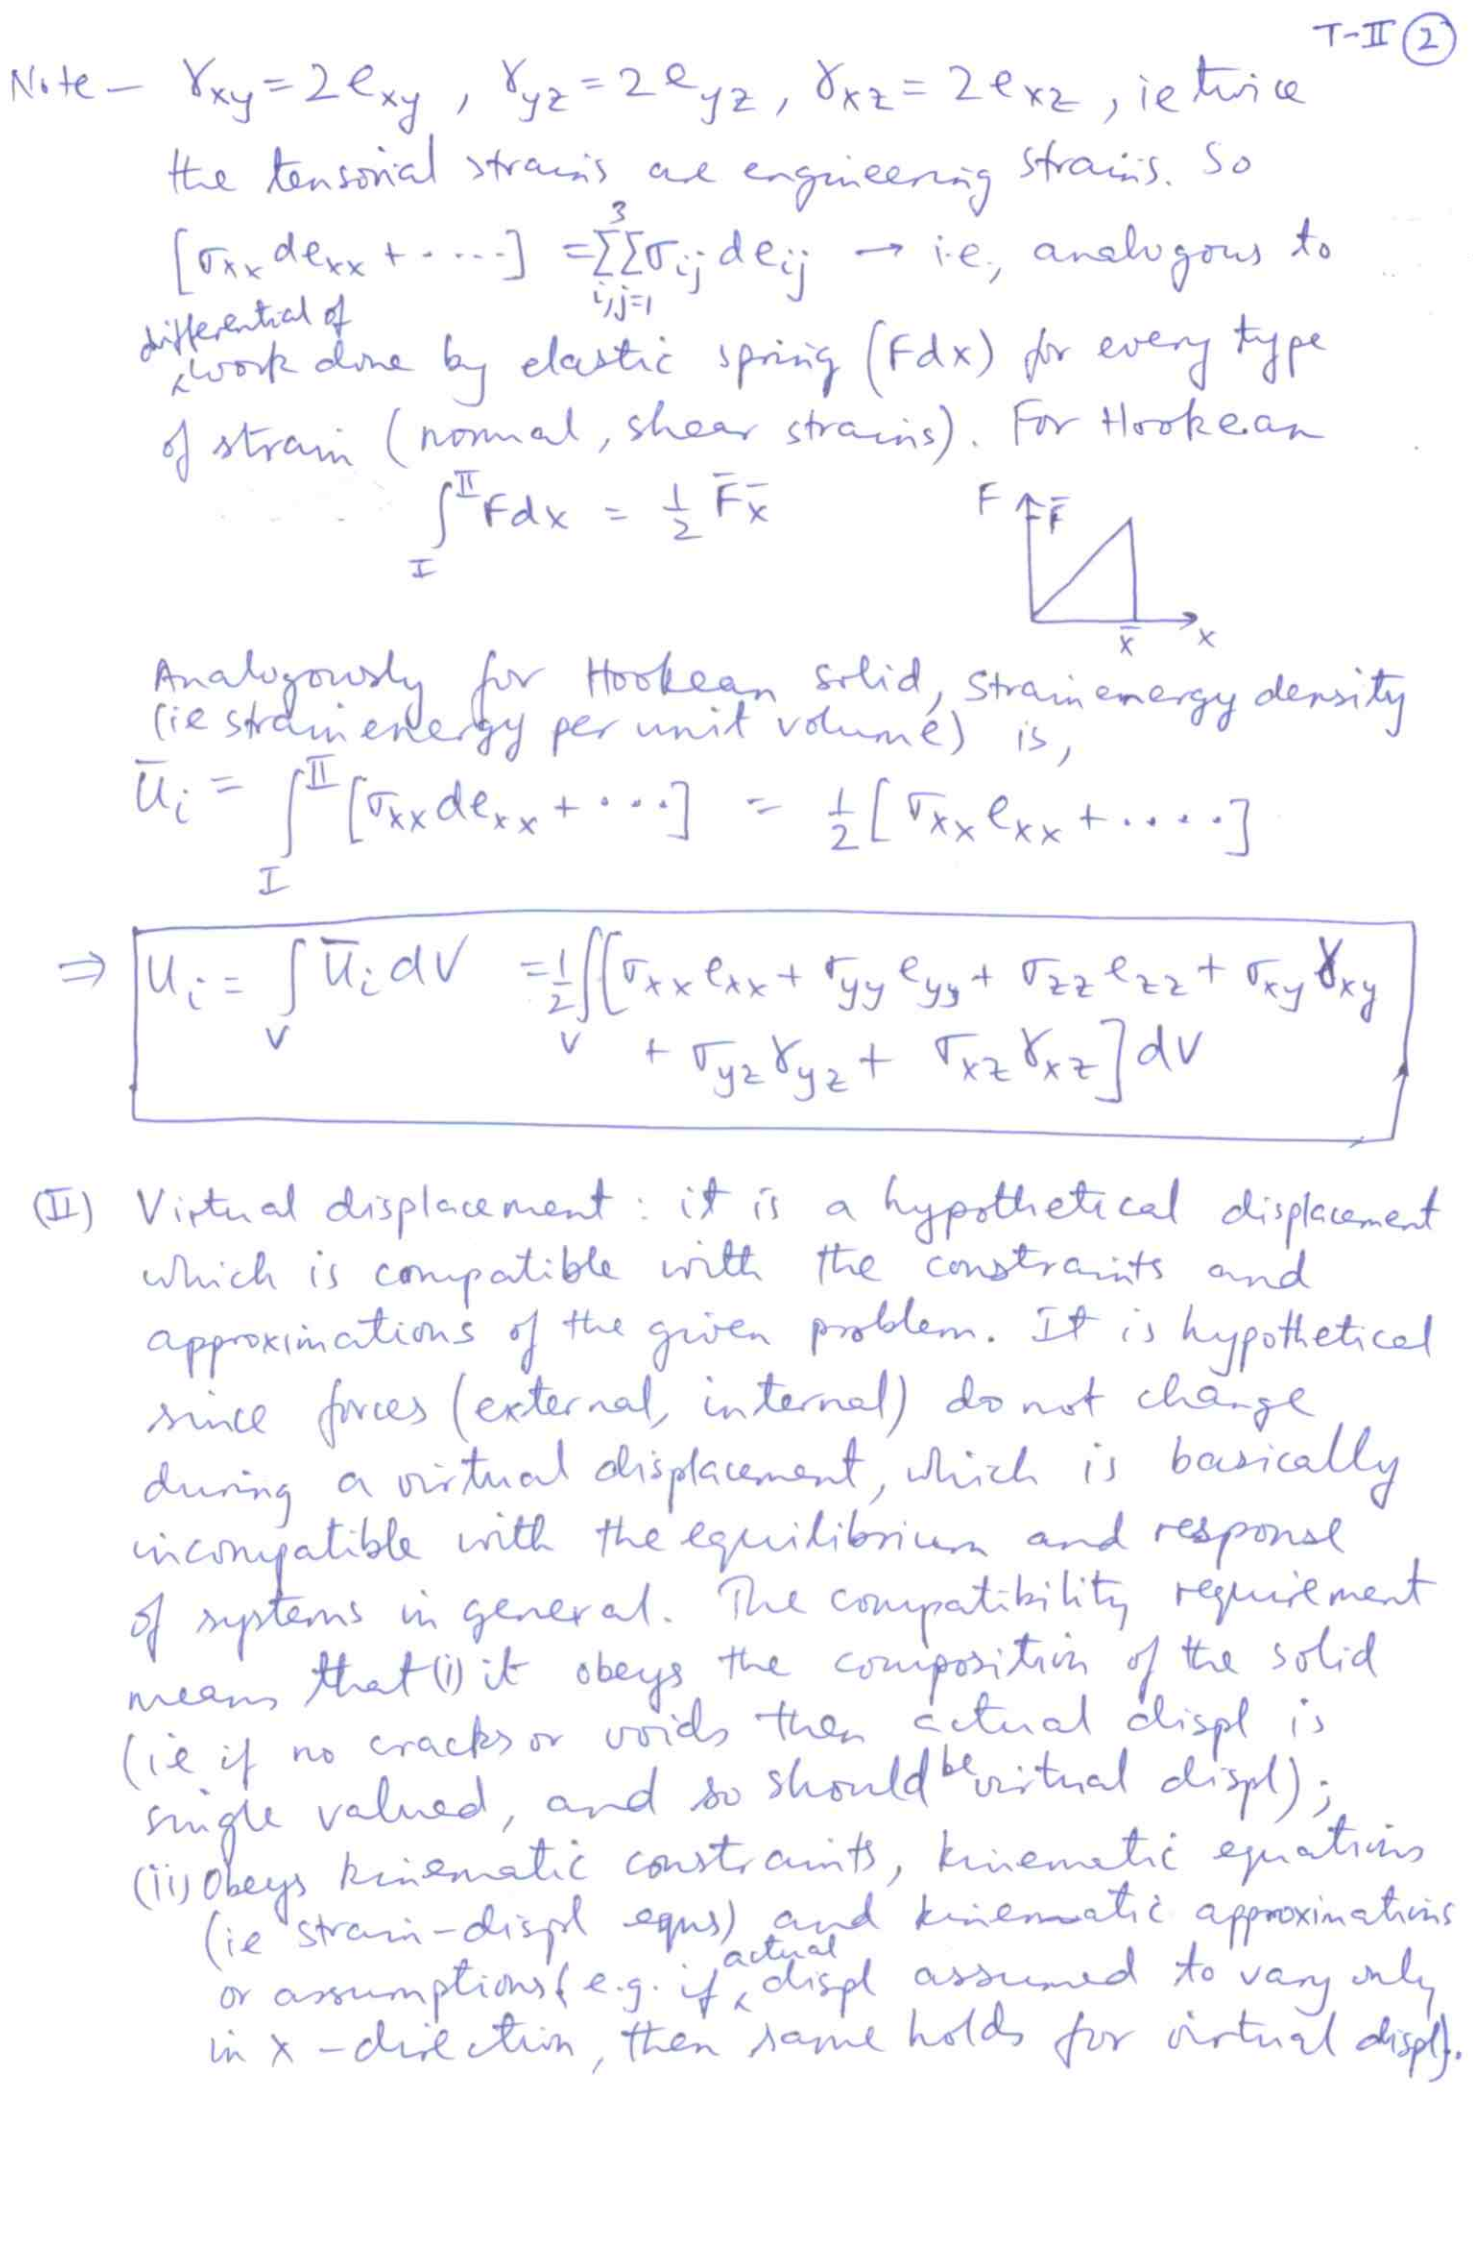 T-II ②
Note – γxy = 2exy , γyz = 2eyz , γxz = 2exz , ie twice
the tensorial strains are engineering strains. So
[σxx dexx + .....] = ΣΣσij deij → i.e., analogous to
3
i,j=1
differential of
‸work done by elastic spring (Fdx) for every type
of strain (normal, shear strains). For Hookean
∫_I^II Fdx = 1/2 F̄x̄
F F̄
x̄ x
Analogously for Hookean solid, strain energy density
(ie strain energy per unit volume) is,
Ūi = ∫_I^II [σxx dexx + ....] = 1/2 [σxx exx + .....]
⇒ Ui = ∫_V Ūi dV = 1/2 ∫_V [σxx exx + σyy eyy + σzz ezz + σxy γxy
+ σyz γyz + σxz γxz] dV
(II) Virtual displacement : it is a hypothetical displacement
which is compatible with the constraints and
approximations of the given problem. It is hypothetical
since forces (external, internal) do not change
during a virtual displacement, which is basically
incompatible with the equilibrium and response
of systems in general. The compatibility requirement
means that (i) it obeys the composition of the solid
(ie if no cracks or voids then actual displ is
single valued, and so should be virtual displ);
(ii) Obeys kinematic constraints, kinematic equations
(ie strain-displ eqns) and kinematic approximations
or assumptions (e.g. if ‸actual displ assumed to vary only
in x-direction, then same holds for virtual displ).